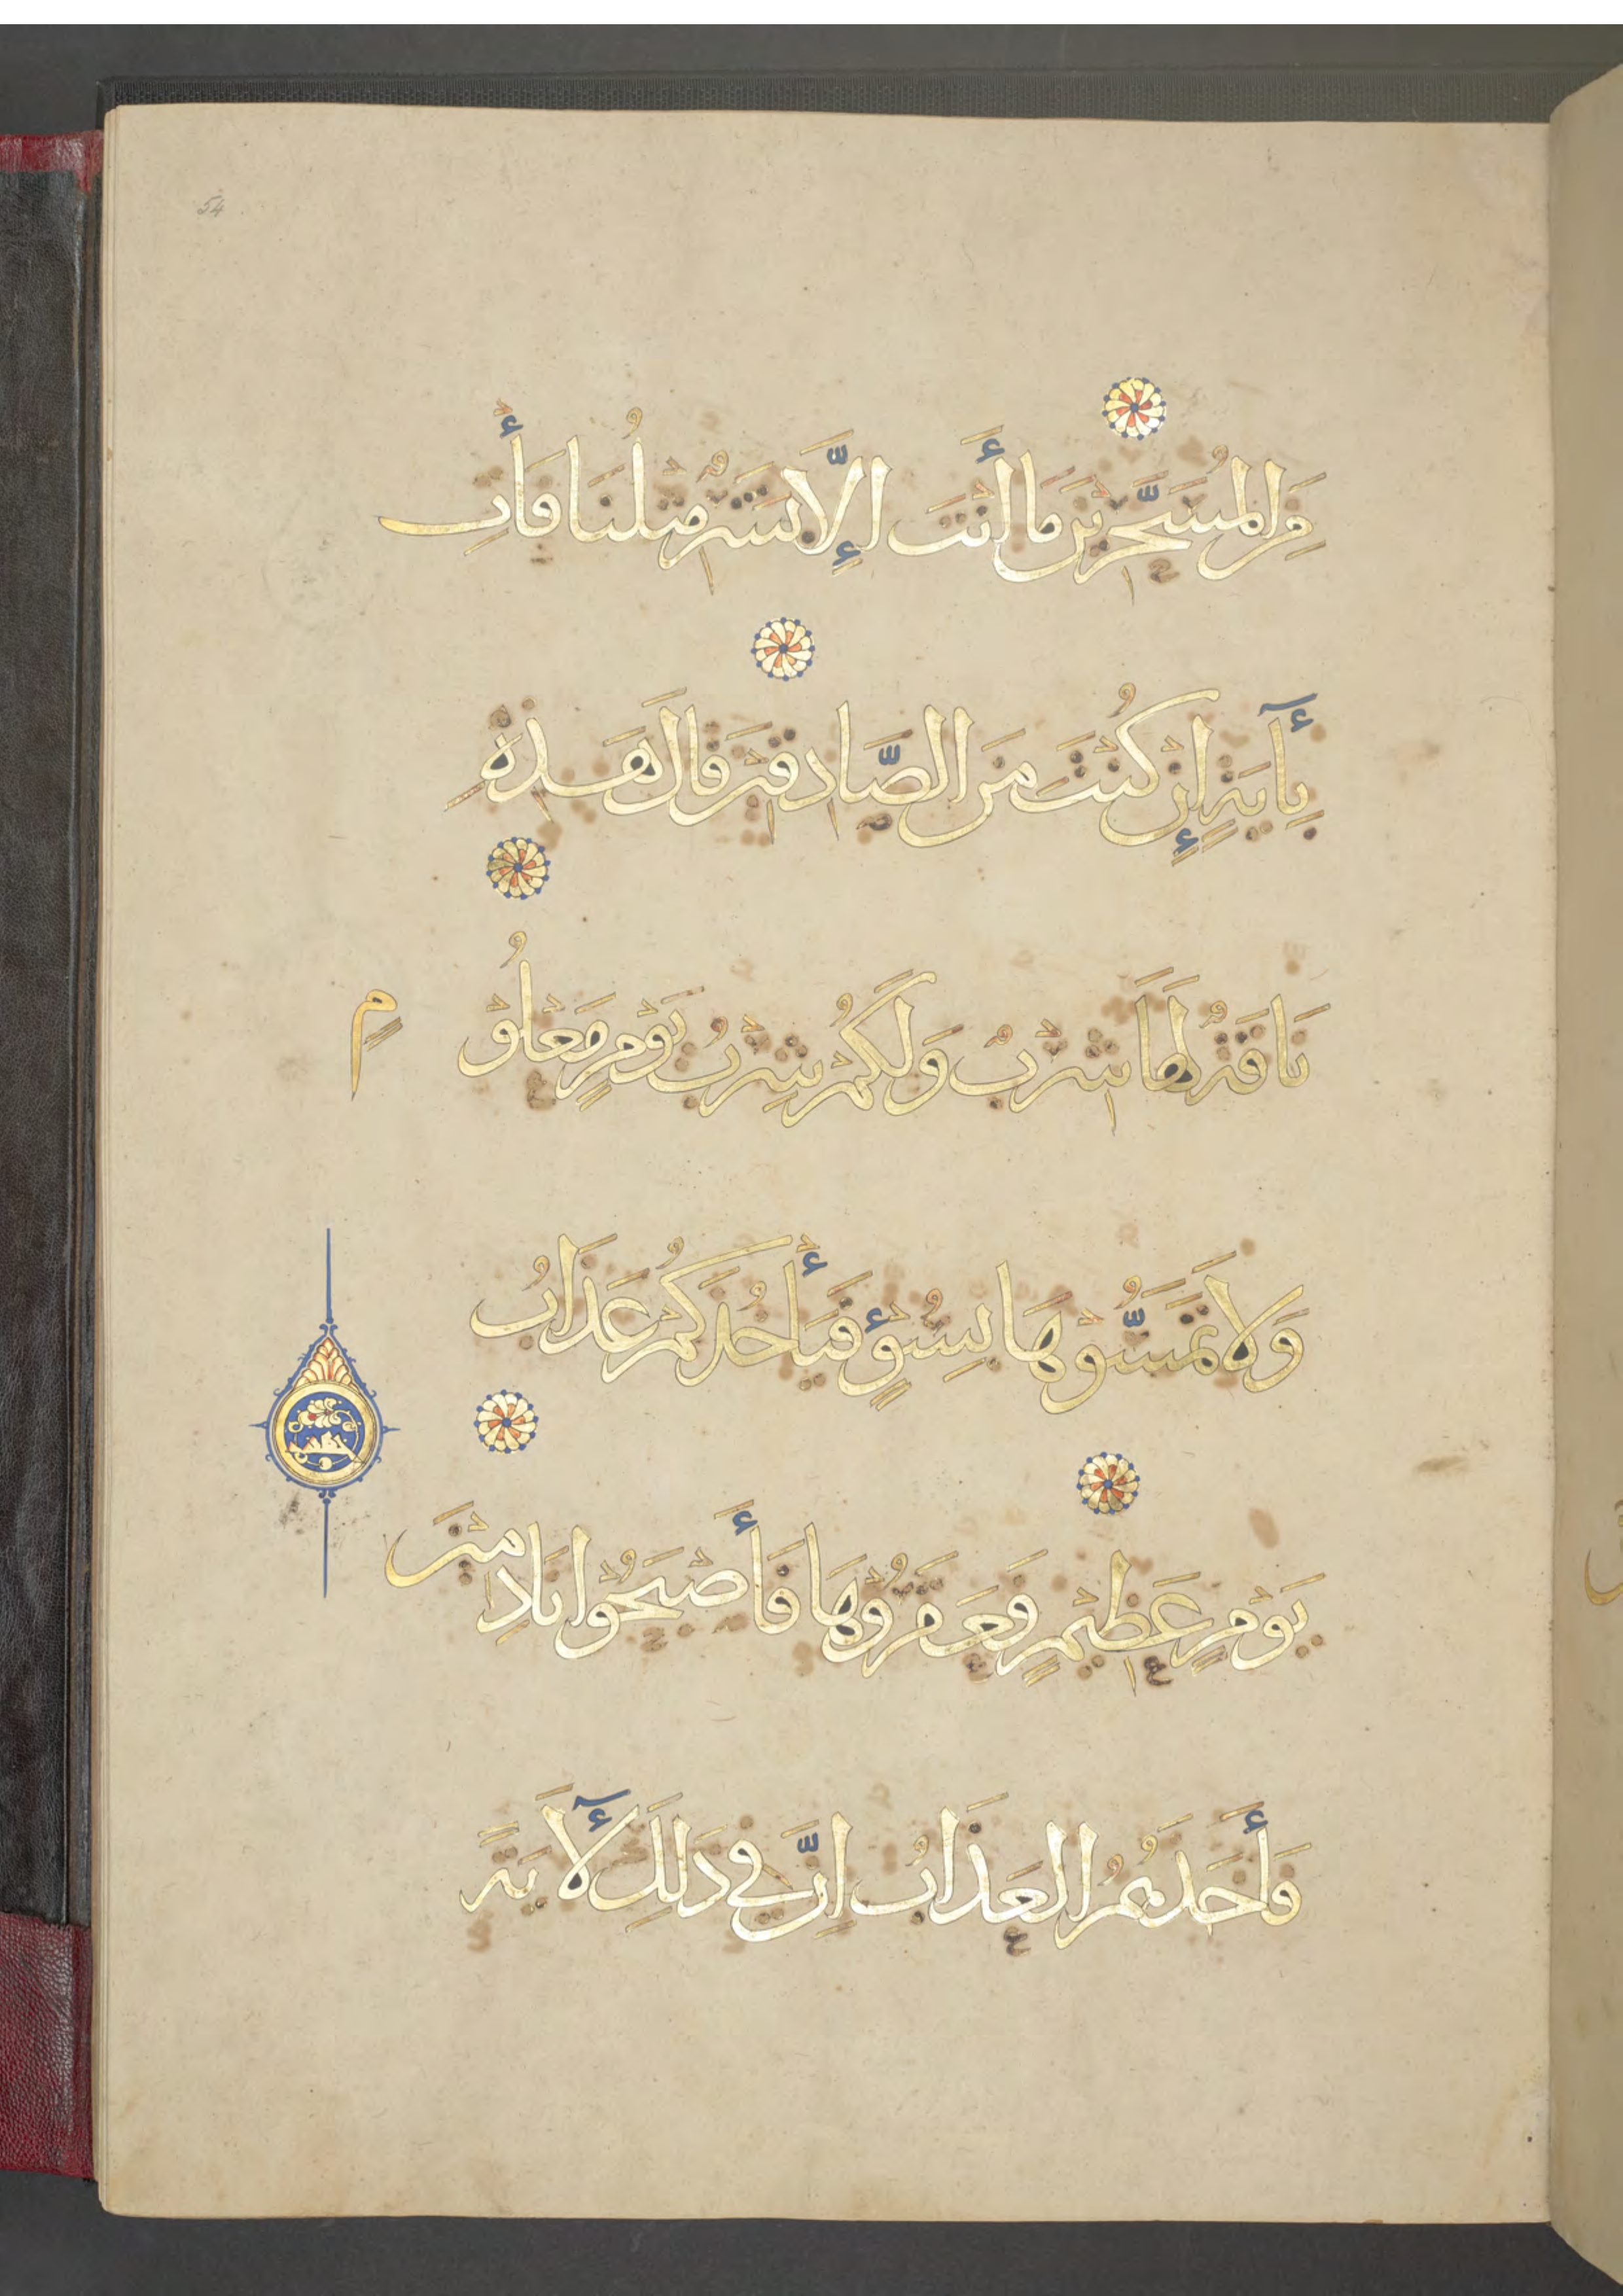 54
مِنَ الْمُسَحَّرِيْنَ مَا أَنْتَ إِلَّا بَشَرٌ مِثْلُنَا فَأْتِ
بِأٓيَةٍ إِنْ كُنْتَ مِنَ الصَّادِقِيْنَ قَالَ هَذِهِ
نَاقَةٌ لَهَا شِرْبٌ وَلَكُمْ شِرْبُ يَوْمٍ مَعْلُوْ
مٍ
وَلَا تَمَسُّوْهَا بِسُوْءٍ فَيَأْخُذَكُمْ عَذَابُ
يَوْمٍ عَظِيْمٍ فَعَقَرُوْهَا فَأَصْبَحُوْا نَادِمِيْنَ
فَأَخَذَهُمُ الْعَذَابُ اِنَّ فِي ذَلِكَ لَأٓيَةً